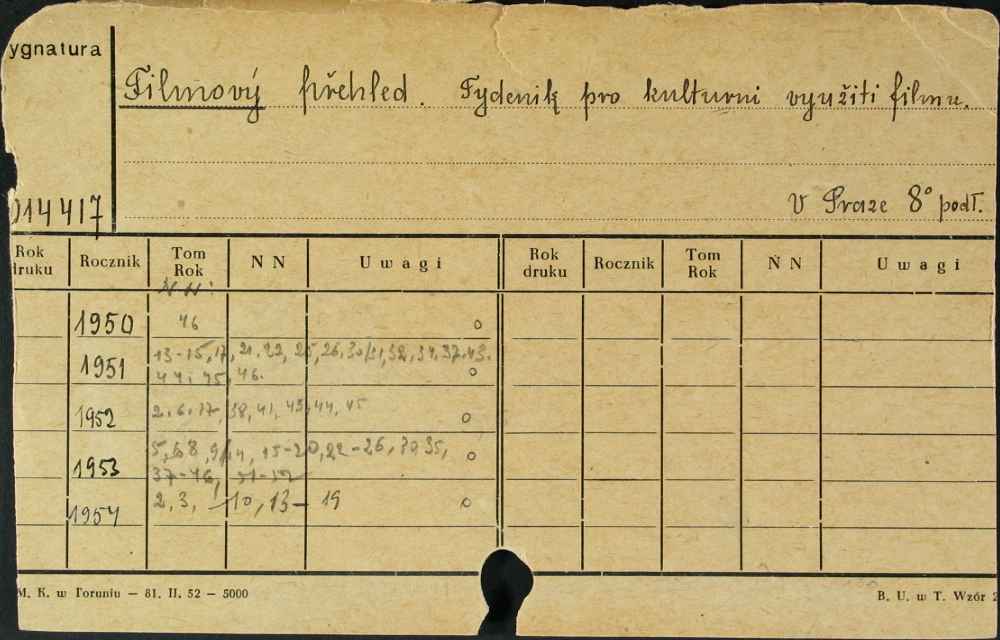 ygnatura
Filmový přehled. Tydenik pro kulturni využiti filmu.
014417
V Praze 8° podł.
Rok druku Rocznik Tom Rok N N Uwagi Rok druku Rocznik Tom Rok N N Uwagi
NN:
1950 46 o
1951 13-15, 17, 21, 22, 25, 26, 30/31, 32, 34, 37, 43.
44 i 45, 46. o
1952 2, 6, 17, 38, 41, 43, 44, 45 o
1953 5, 8, 15-20, 22-26, 35, o
37-46, 51-52
1954 2, 3, 10, 13-19 o
M. K. w Toruniu — 81. II. 52 — 5000
B. U. w T. Wzór 2